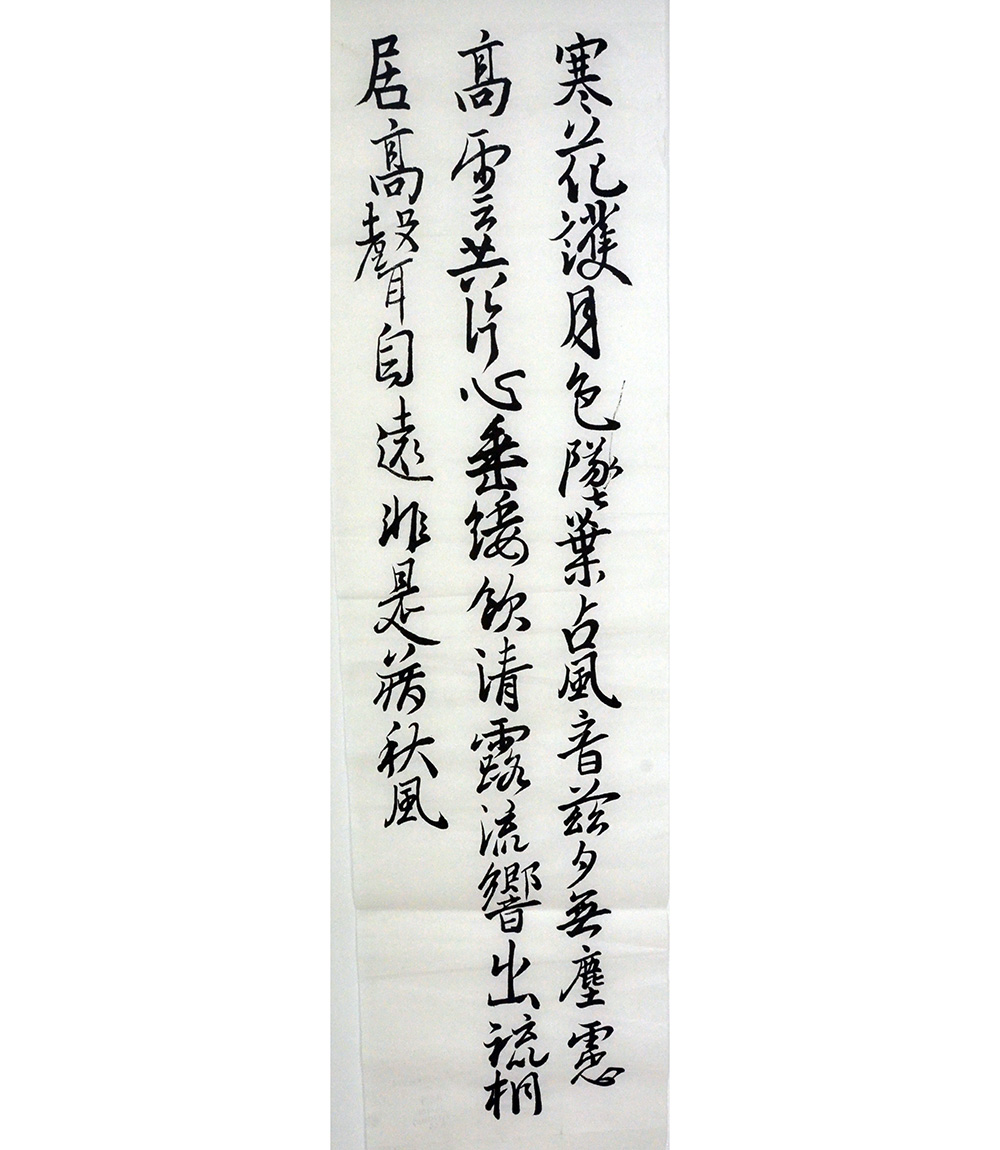 寒花護月色墜葉占風音茲夕無塵慮
高雲共片心垂緌飲清露流響出疏桐
居高聲自遠非是藉秋風